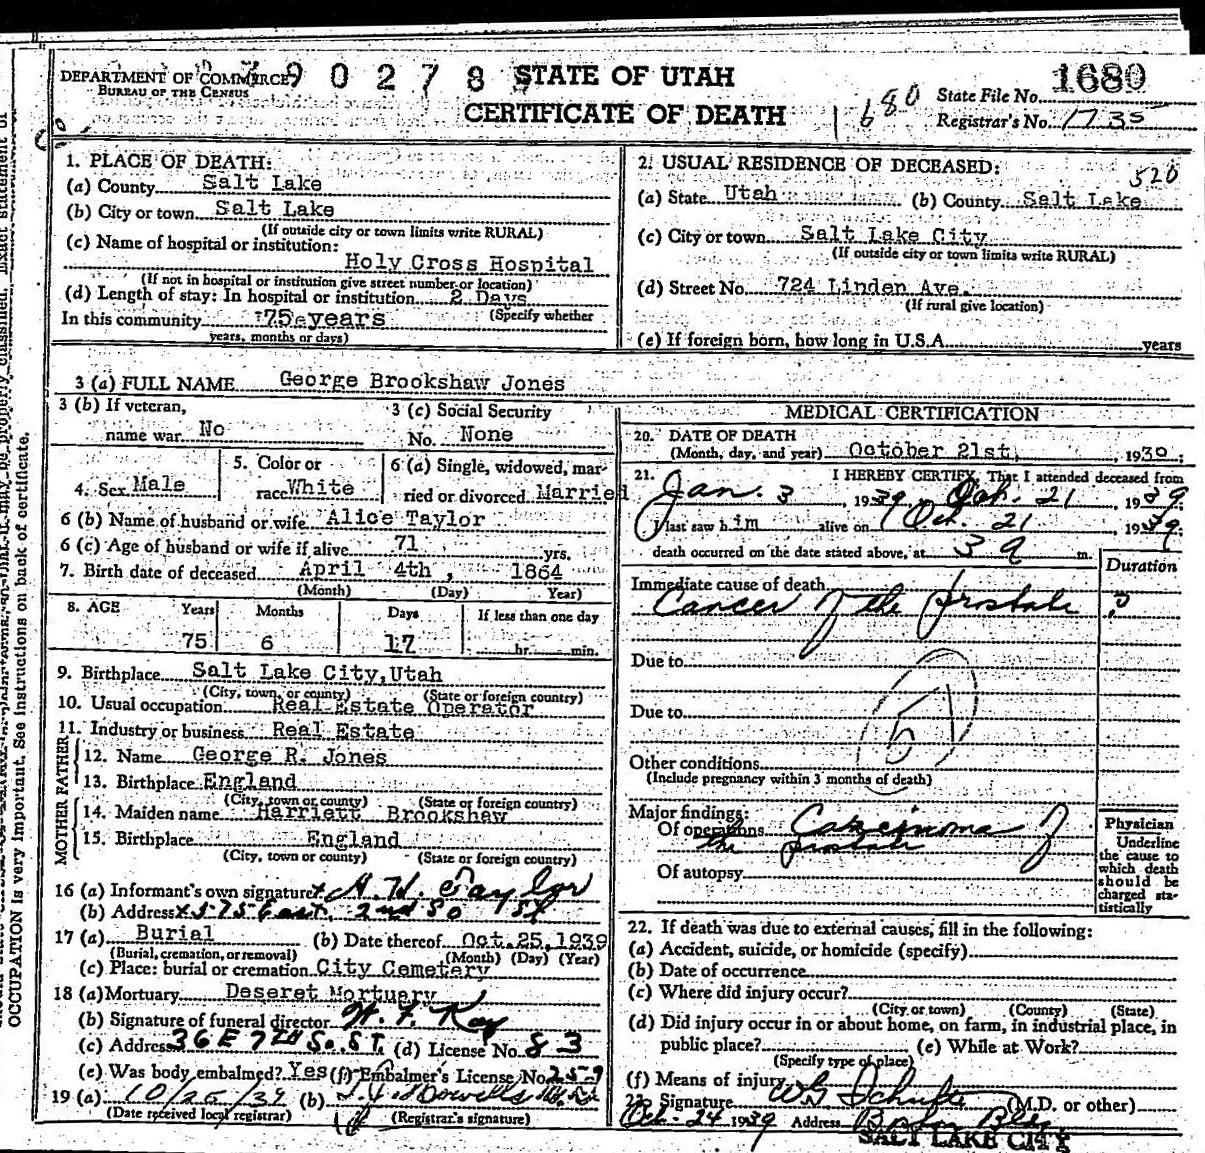 DEPARTMENT OF COMMERCE
BUREAU OF THE CENSUS
390278
STATE OF UTAH
CERTIFICATE OF DEATH
1680
State File No. 1680
Registrar's No. 1735
1. PLACE OF DEATH:
(a) County Salt Lake
(b) City or town Salt Lake
(If outside city or town limits write RURAL)
(c) Name of hospital or institution:
Holy Cross Hospital
(If not in hospital or institution give street number or location)
(d) Length of stay: In hospital or institution 2 Days
In this community 75 years (Specify whether
years, months or days)
2. USUAL RESIDENCE OF DECEASED:
520
(a) State Utah (b) County Salt Lake
(c) City or town Salt Lake City
(If outside city or town limits write RURAL)
(d) Street No. 724 Linden Ave.
(If rural give location)
(e) If foreign born, how long in U.S.A. years
3 (a) FULL NAME George Brookshaw Jones
3 (b) If veteran,
name war No
3 (c) Social Security
No. None
4. Sex Male
5. Color or
race White
6 (a) Single, widowed, mar-
ried or divorced Married
6 (b) Name of husband or wife Alice Taylor
6 (c) Age of husband or wife if alive 71 yrs.
7. Birth date of deceased April 4th, 1864
(Month) (Day) Year)
8. AGE Years Months Days If less than one day
75 6 17 hr. min.
9. Birthplace Salt Lake City, Utah
(City, town, or county) (State or foreign country)
10. Usual occupation Real Estate Operator
11. Industry or business Real Estate
FATHER
12. Name George R. Jones
13. Birthplace England
(City, town or county) (State or foreign country)
MOTHER
14. Maiden name Harriett Brookshaw
15. Birthplace England
(City, town or county) (State or foreign country)
16 (a) Informant's own signature x H. H. Taylor
(b) Address x 575 East 2nd So St
17 (a) Burial (b) Date thereof Oct. 25, 1939
(Burial, cremation, or removal) (Month) (Day) (Year)
(c) Place: burial or cremation City Cemetery
18 (a) Mortuary Deseret Mortuary
(b) Signature of funeral director W. F. Kay
(c) Address 36 E 7th So. ST. (d) License No. 83
(e) Was body embalmed? Yes (f) Embalmer's License No. 259
19 (a) 10/25/39 (b)
(Date received local registrar) (Registrar's signature)
MEDICAL CERTIFICATION
20. DATE OF DEATH
(Month, day, and year) October 21st, 1939;
21. I HEREBY CERTIFY, That I attended deceased from
Jan. 3 1939, Oct. 21, 1939
I last saw him alive on Oct. 21 1939;
death occurred on the date stated above, at 3 a m.
Duration
Immediate cause of death
Cancer of the prostate ?
Due to
51
Due to
Other conditions
(Include pregnancy within 3 months of death)
Major findings:
Of operations Carcinoma of
the prostate
Of autopsy
Physician
Underline
the cause to
which death
should be
charged sta-
tistically
22. If death was due to external causes, fill in the following:
(a) Accident, suicide, or homicide (specify)
(b) Date of occurrence
(c) Where did injury occur?
(City or town) (County) (State)
(d) Did injury occur in or about home, on farm, in industrial place, in
public place? (e) While at Work?
(Specify type of place)
(f) Means of injury
23. Signature (M.D. or other)
Oct-24 1939 Address
SALT LAKE CITY
OCCUPATION is very important. See instructions on back of certificate.